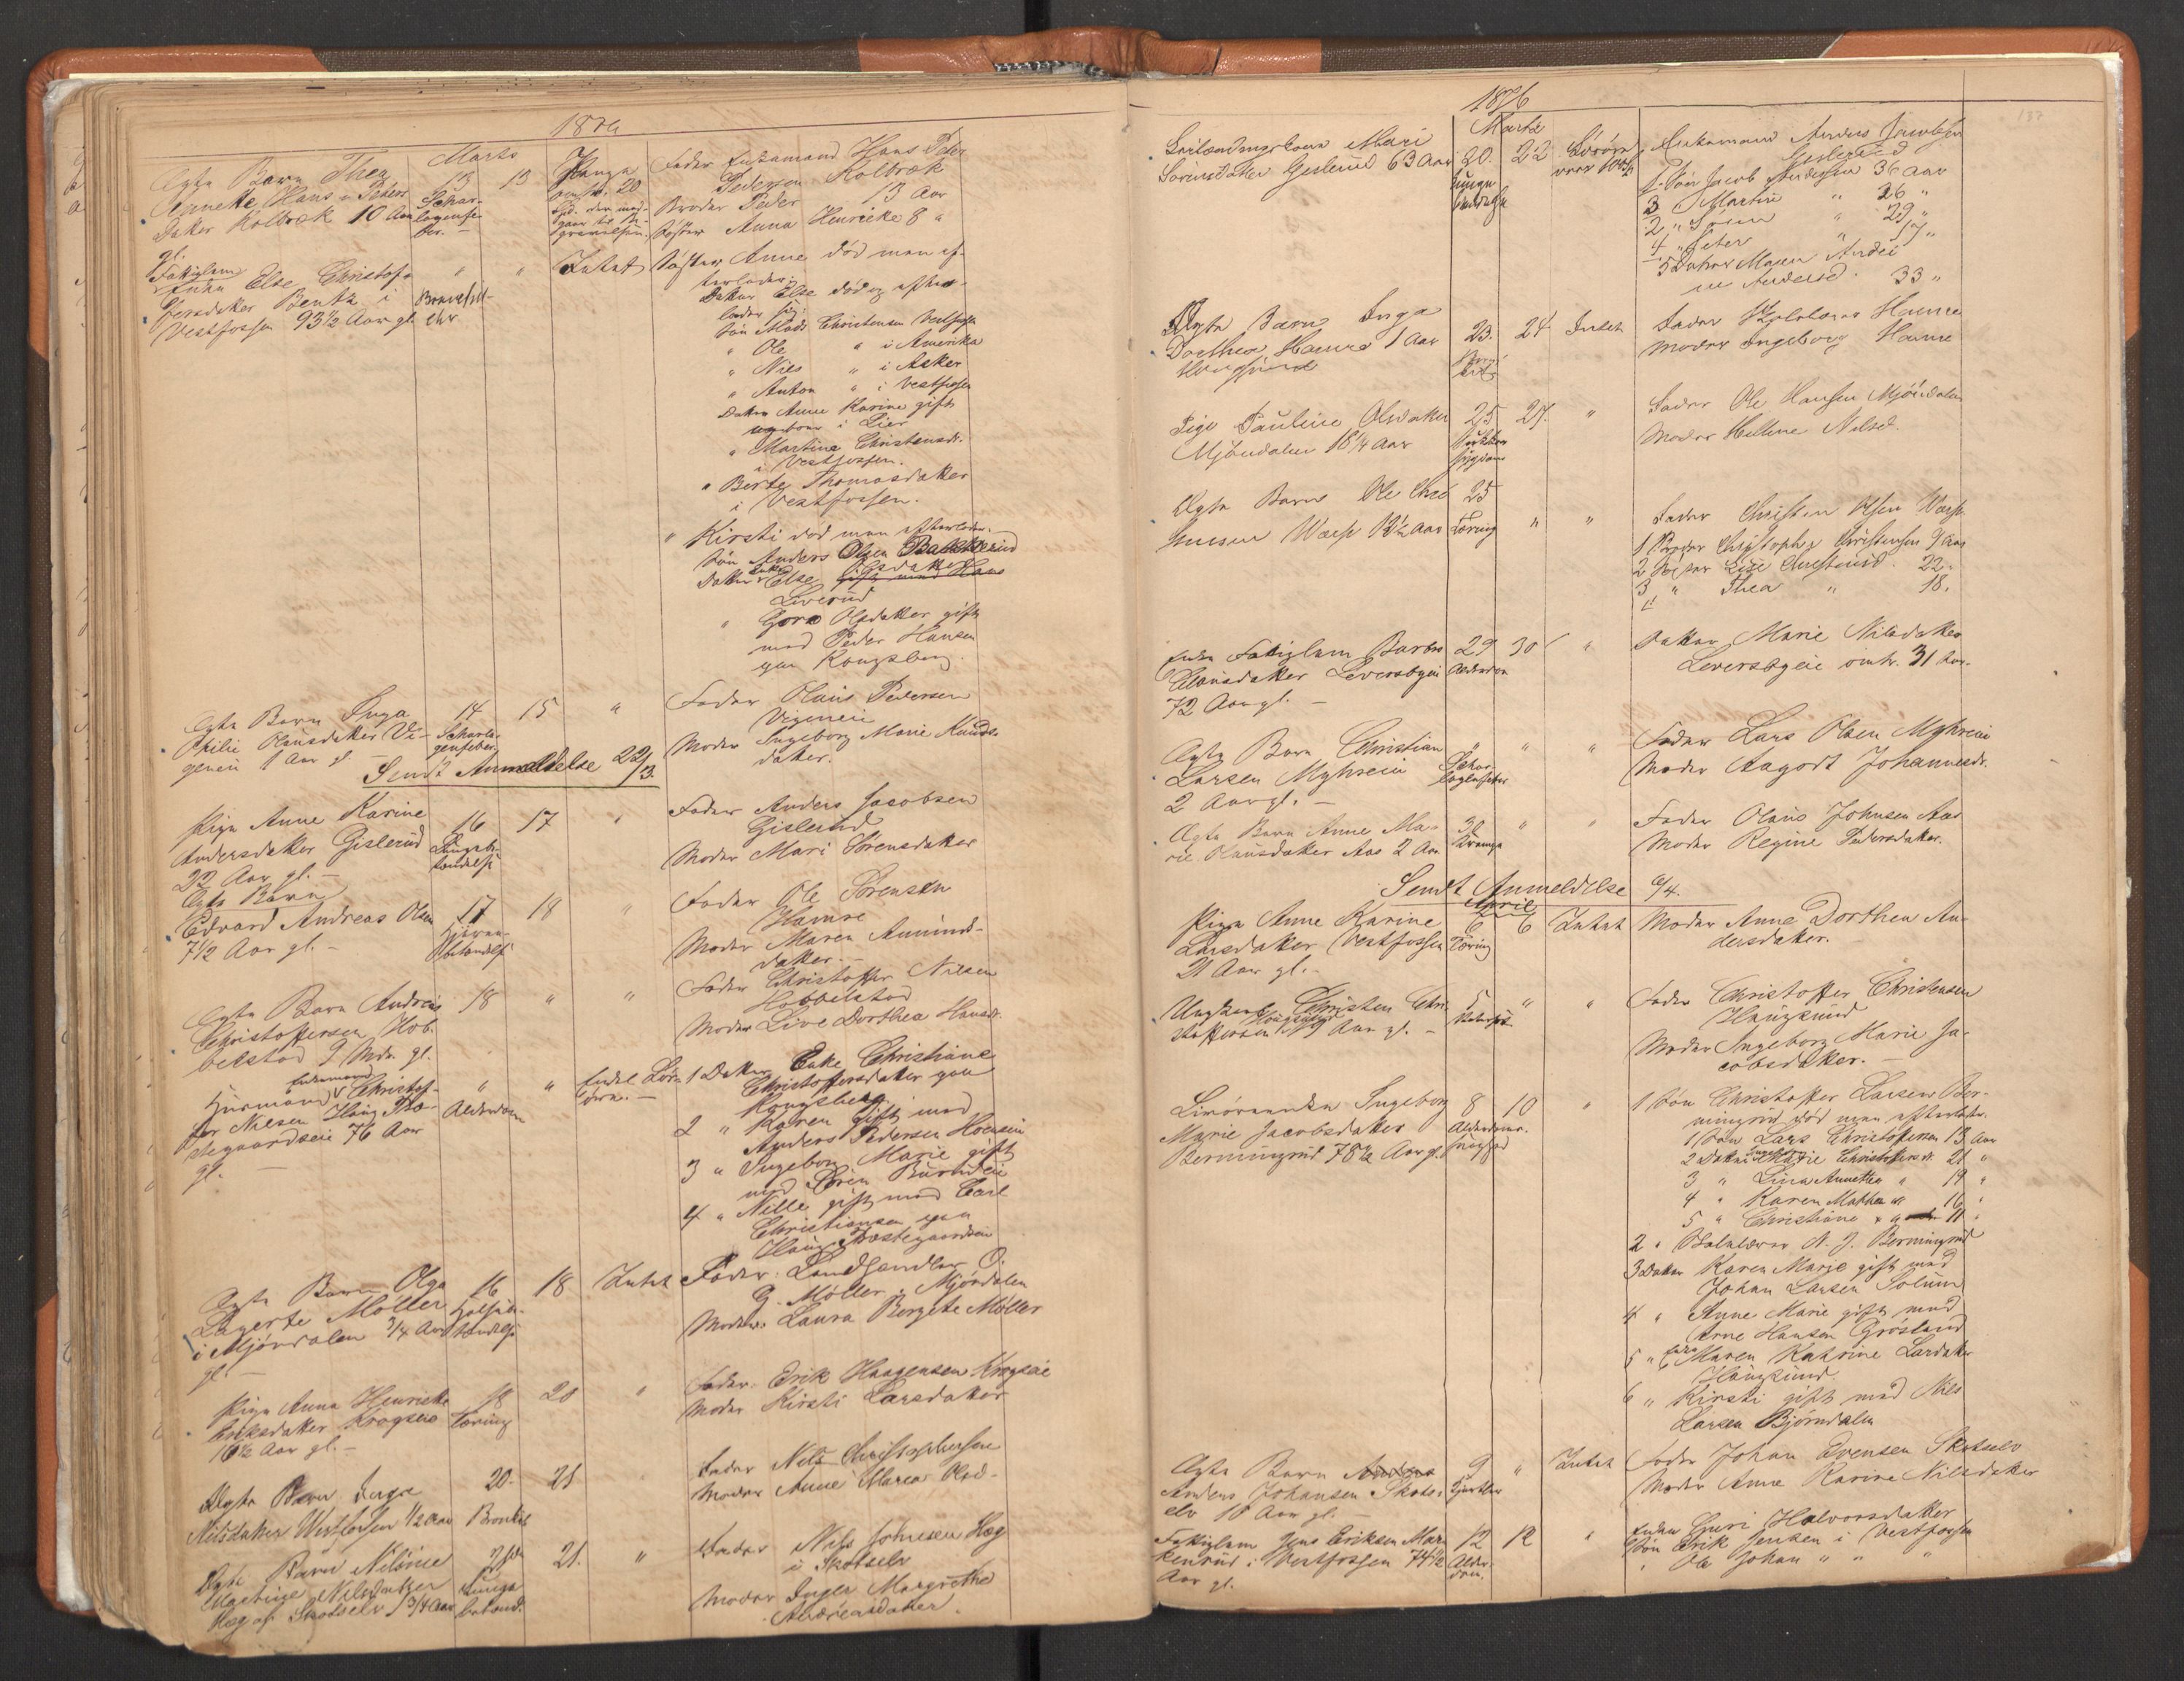 1876
Marts
Ægte Barn Thea
Annette Hans Peders
Datter Kolbræk 10 Aar
gl.
13
Skar-
lagensfe-
ber.
13
Penge
omtr. 20
Spd. der med-
gaar til Be-
gravelsen.
Fader Enkemand Hans Peder
Pedersen Kolbræk
Broder Peder 13 Aar
Søster Anna Henrikke 8 "
Fattiglem
Enke Else Christof-
fersdatter Bentz i
Vestfossen 93½ Aar gl.
"
"
Intet
Søster Anne død men ef-
terlader:
Datter Else død og efter-
lader sig:
Søn Mads Christensen Vestfossen
" Ole " i Amerika
" Niels " i Asker
" Anton " i Vestfossen
Datter Anne Karine gift
og boer i Lier
" Martine Christensdr.
i Vestfossen.
" Berte Thomasdatter
i Vestfossen.
" Kirsti død men efterlader
Søn Anders Olsen
Datter Enke Else Olsdatter gift med Hans
Liverud
" Goro Olsdatter gift
med Peder Hansen
paa Kongsberg.
Ægte Barn Inga
Otilie Olausdatter Vi-
geneie 1 Aar gl.
14
Skarla-
gensfeber.
15
"
Fader Olaus Pedersen
Vigeneie
Moder Ingeborg Marie Knuds-
datter.
Sendt Anmeldelse 22/3.
Pige Anne Karine
Andersdatter Gislerud
22 Aar gl. -
16
Lungebe-
tændelse
17
"
Fader Anders Jacobsen
Gislerud
Moder Mari Sørensdatter
Ægte Barn
Edvard Andreas Olsen
7½ Aar gl. -
17
Hjerne-
betændelse
18
"
Fader Ole Sørensen
Hamre
Moder Maren Amunds-
datter. -
Ægte Barn Andreas
Christoffersen Hob-
belstad 9 Mdr. gl.
18
"
"
Fader Christoffer Nilsen
Hobbelstad
Moder Live Dorthea Hansdr.
Enkemand
Huusmand Christof-
fer Nilsen Haug Præ-
stegaardseie 76 Aar
gl. -
"
Alderdom
"
Endel Løs-
øre. -
1 Datter Enke Christiane
Christoffersdatter paa
Kongsberg
2 " Karen gift med
Anders Pedersen Hoenseie
3 " Ingeborg Marie gift
med Søren Burudeie
4 " Nille gift med Carl
Christiansen paa
Haug Præstegaardseie
Ægte Barn Olga
Lagerte Møller
i Mjøndalen ¾ Aar
gl. -
16
Halsbe-
tændelse
18
Intet
Fader: Landhandler O.
G. Møller, Mjøndalen
Moder: Laura Bergete Møller
Pige Anna Henrikke
Eriksdatter Krogseie
16½ Aar gl. -
18
Tæring
20
"
Fader: Erik Haagensen Krogseie
Moder Kirsti Larsdatter
Ægte Barn Inga
Nilsdatter Westfossen ½ Aar
20.
Bronkit
21
Fader Nils Christophersen
Moder Anne Maria Olsd-
Ægte Barn Nilsine
Martine Nilsdatter
Hæg af Skotselv 1¾ Aar
Lunge
betænd.
21.
"
Fader Nils Johnsen Hæg
i Skotselv
Moder Inger Margrethe
Andreasdatter.
1876
Marts
Mari
Sørensdatter Gislerud 63 Aar
20.
Lunge
betændelse
22
Løsøre
Enkemand Anders Jacobsen
Gislerud
1. Søn Jacob Andersen 36 Aar
3 " Martin " 26 "
2 " Søren " 29 "
4 " Peter " 17 "
5 Datter Maren Andri
ne Andersd. 33 "
Ægte Barn Inga
Dorthea Hamre 1 Aar
Hougsund
23.
24
Intet
Fader Hamre
Moder Ingeborg Hamre
Pige Pauline Olsdatter
Mjøndalen 18¼ Aar
25
27.
"
Fader Ole Hansen Mjøndalen
Moder Helline Nilsd.
Ægte Barn Ole Chri
stensen Woesp 13½ Aar
25
Tæring
"
"
Fader Christen Olsen Woesp
1 Broder Christopher Christensen 9 Aar
2 Søster Lise Christensd. 22 "
3 " Thea " 18 "
Enke Fattiglem Barbro
Clausdatter Leversbyeie
72 Aar gl. -
29
Alderdom
30
"
Datter Marie Nilsdatter
Leversbyeie omtr. 31 Aar.
Ægte Barn Christian
Larsen Myhreeie
2 Aar gl. -
"
Skar-
lagensfeber
"
"
Fader Lars Olsen Myhreeie
Moder Aagodt Johannesdr.
Ægte Barn Anne Ma-
rie Olausdatter Aas 2 Aar
30
Krampe
"
"
Fader Olaus Johnsen Aas
Moder Regine Pedersdatter.
Sendt Anmeldelse 6/4.
April
Pige Anne Karine
Larsdatter Vestfossen
21 Aar gl. -
6
Tæring
6
Intet
Moder Anne Dorthea An-
dersdatter.
Ungkarl Christen Chri-
stoffersen Haugsund 19 Aar gl. -
5
"
"
Fader Christoffer Christensen
Haugsund
Moder Ingeborg Marie Ja-
cobsdatter. -
Livøreenke Ingeborg
Marie Jacobsdatter
Bermingrud 78½ Aar gl.
8
Alderdoms-
svaghed
10
"
1 Søn Christoffer Larsen Ber-
mingrud død men efterlader
1 Søn Lars Christoffersen 13 Aar
2 Datter Ingeborg Marie Christoffersdr. 21 "
3 " Lina Annette " 19 "
4 " Karen Mathea " 16 "
5 " Christiane " 11 "
2 " N. J. Bermingrud
3 Datter Karen Marie gift med
Johan Larsen Solum
4 " Anne Marie gift med
Arne Hansen Grøsland
5 " Enke Maren Katrine Larsdatter
Haugsund
6 " Kirsti gift med Nils
Larsen Bjørndalen
Ægte Barn Anders
Anders Johansen Skots-
elv 10 Aar gl. -
9
"
Intet
Fader Johan Evensen Skotselv
Moder Anne Karine Nilsdatter
Fattiglem Jens Eriksen Mær-
kenrud i Vestfossen 74½
Aar gl.
12
Alder-
dom.
12
"
Enke Guri Halvorsdatter
Søn Erik Jensen i Vestfossen
" Ole Johan " " "